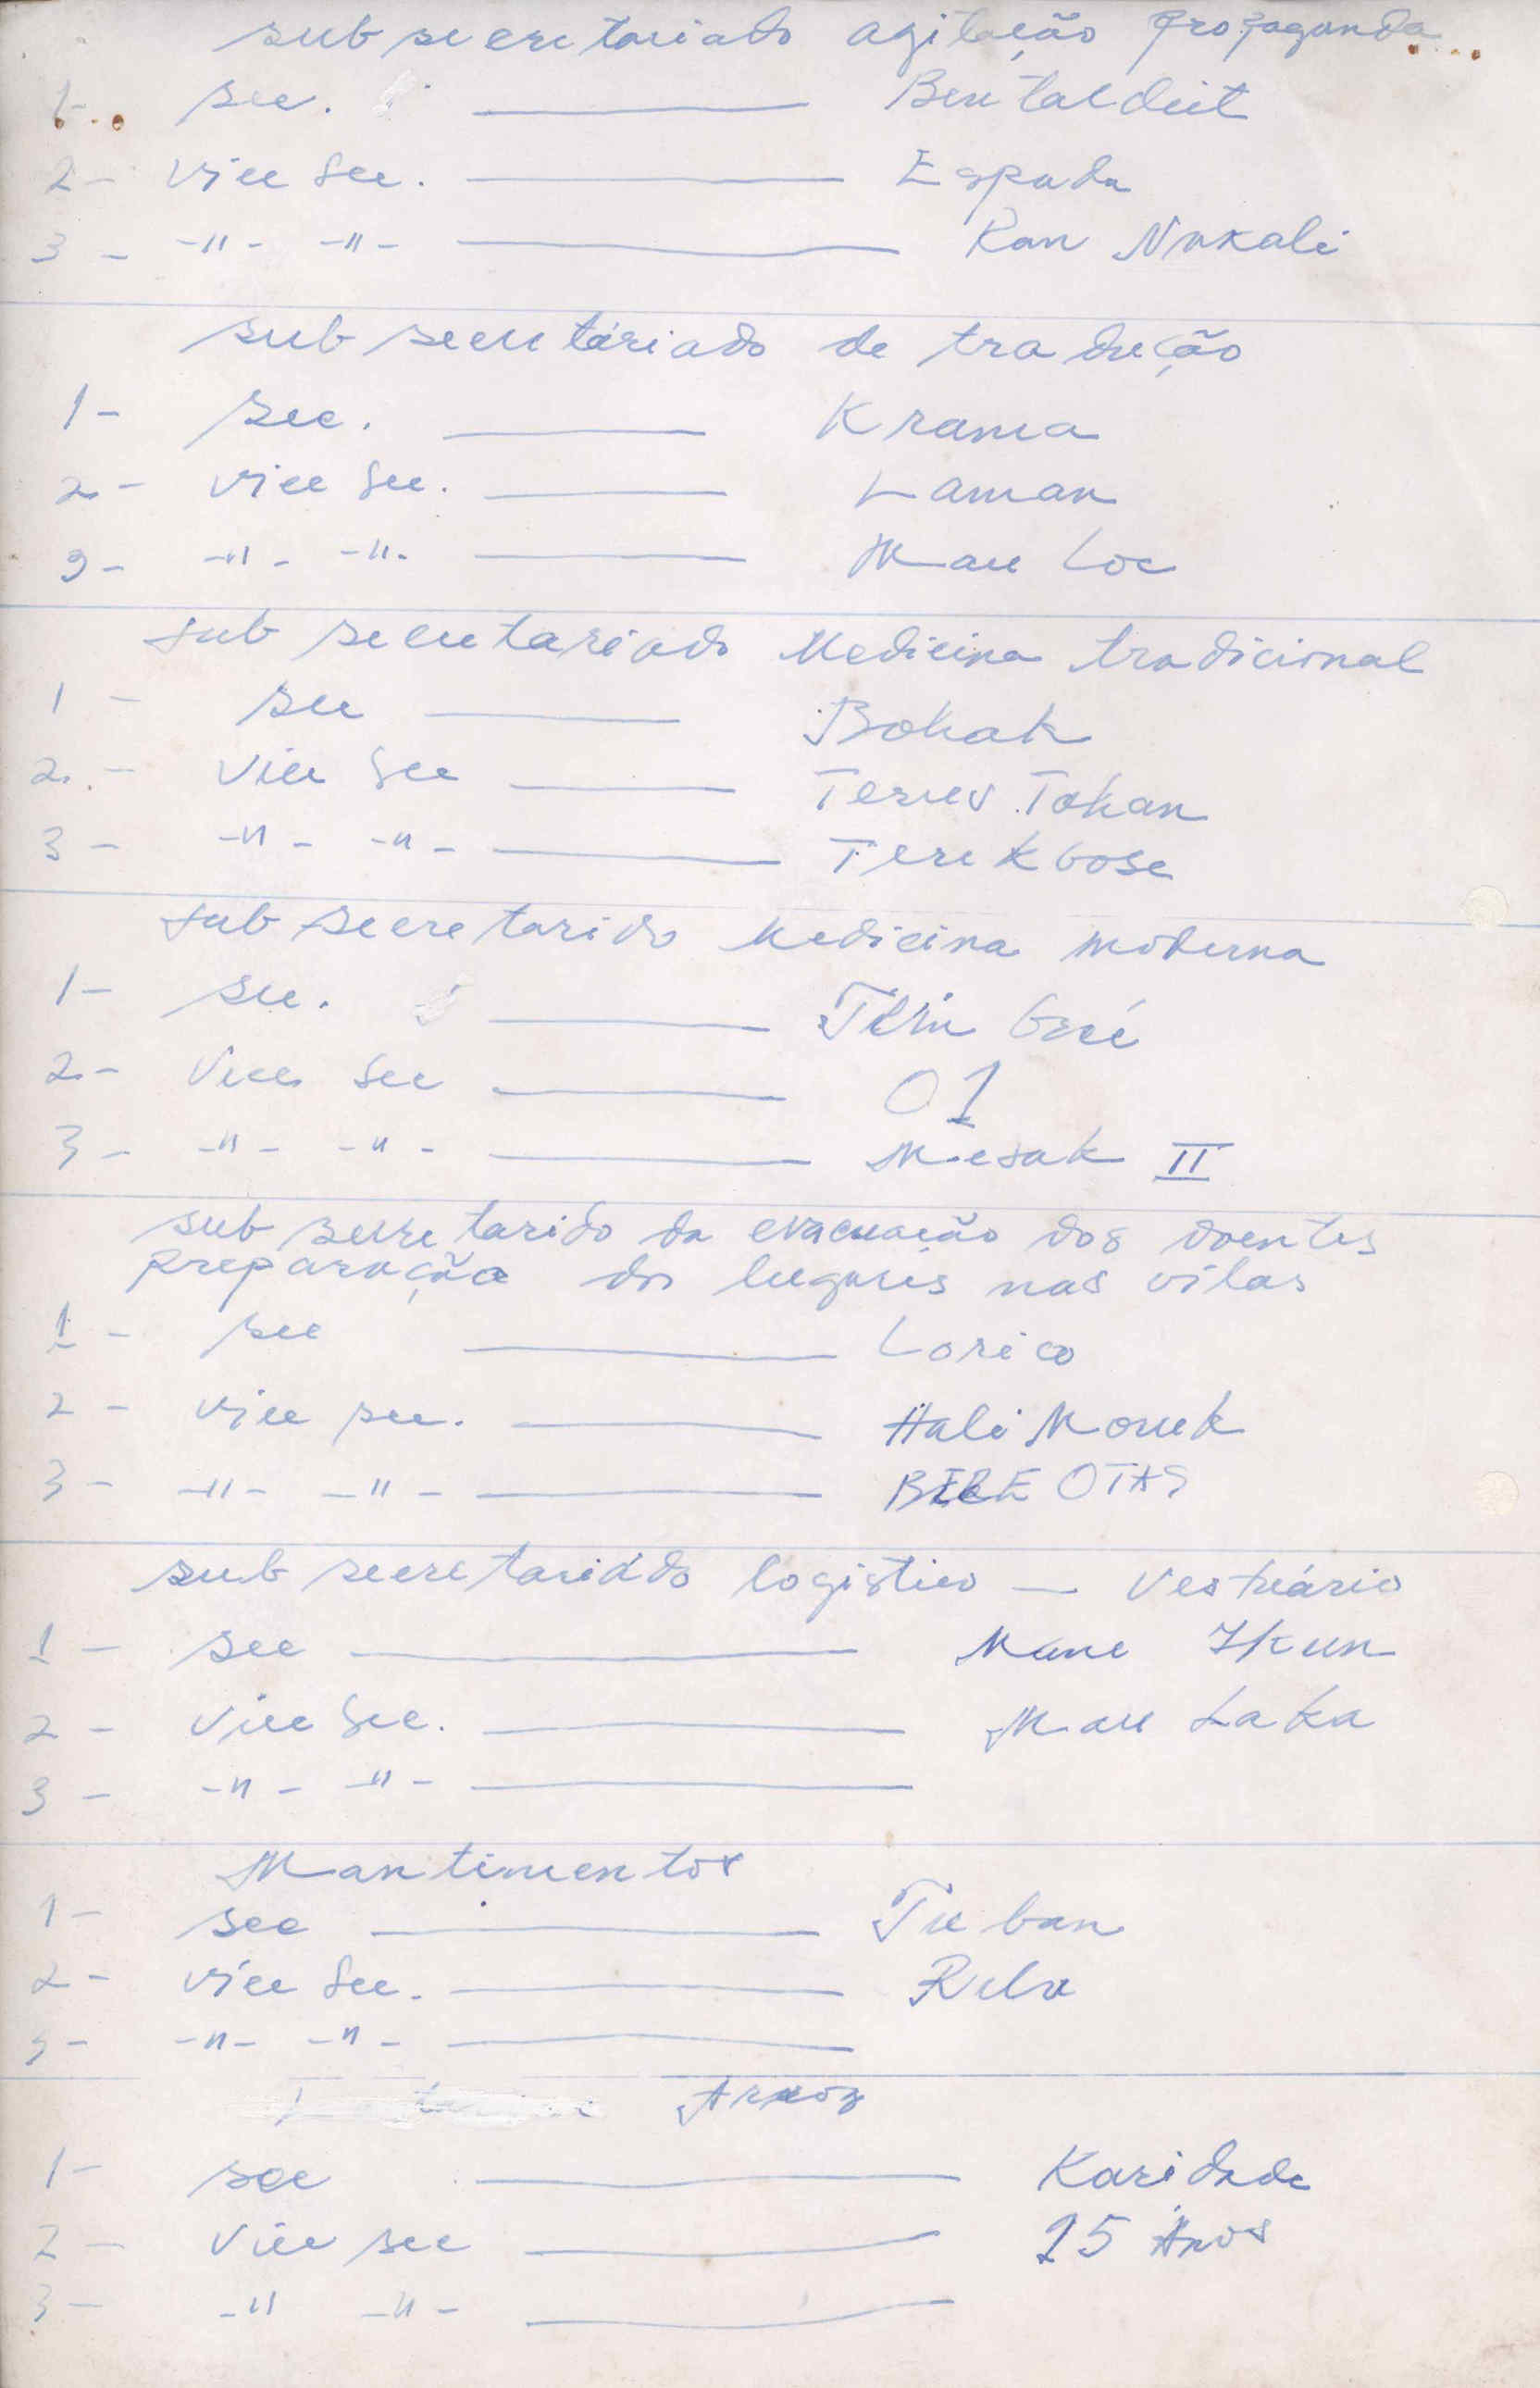 sub secretariado agitação propaganda
1- sec. ——— Beutaldeit
2- Vice Sec. ——— Espada
3- -"- -"- ——— Ran Nakali
sub secretáriado de tradução
1- sec. ——— Krama
2- vice Sec. ——— Laman
3- -"- -"- ——— Mau Loe
sub secretariado Medicina tradicional
1- sec ——— Bohak
2- Vice Sec ——— Terus Tahan
3- -"- -"- ——— Terekbose
sub secretarido Medicina moderna
1- sec. ———
2- Vice Sec ——— 01
3- -"- -"- ——— Mesak II
sub secretarido da evacuação dos doentes
preparação dos lugares nas vilas
1- sec ——— Lorico
2- vice sec. ——— Hali Moruk
3- -"- -"- ——— BERE OTAS
sub secretariado logistico — Vestuário
1- sec ——— Mane Ikun
2- Vice Sec. ——— Mau Laka
3- -"- -"- ———
Mantimentos
1- sec ——— Tuban
2- vice Sec. ——— Rela
3- -"- -"- ———
Arroz
1- sec ——— Karidade
2- Vice sec ——— 15 Anos
3- -" -"- ———